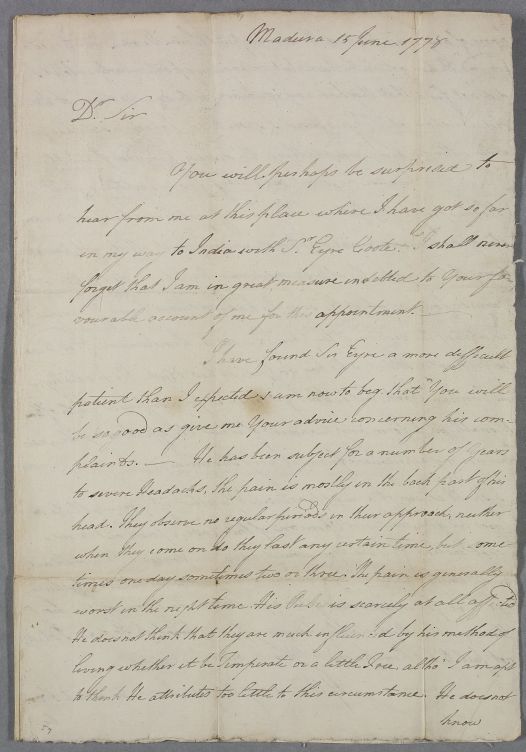 Madura 15 June 1778
Dr. Sir
You will perhaps be surprised to
hear from me at this place where I have got so far
in my way to India with Sr. Eyre Coote. I shall never
forget that I am in great measure indebted to Your fa-
vourable account of me for this appointment.—
I have found Sir Eyre a more difficult
patient than I expected & am now to beg that You will
be so good as give me Your advice concerning his com-
plaints. — He has been subject for a number of years
to severe Headachs, the pain is mostly in the back part of his
head. They observe no regular periods in their approach, neither
when they come on do they last any certain time, but some-
times one day sometimes two or three. The pain is generally
worst in the night time. His Pulse is scarcely at all affected
He does not think that they are much influenced by his method of
living whether it be Temperate or a little Free, altho' I am apt
to think He attributes too little to this circumstance. He does not
know